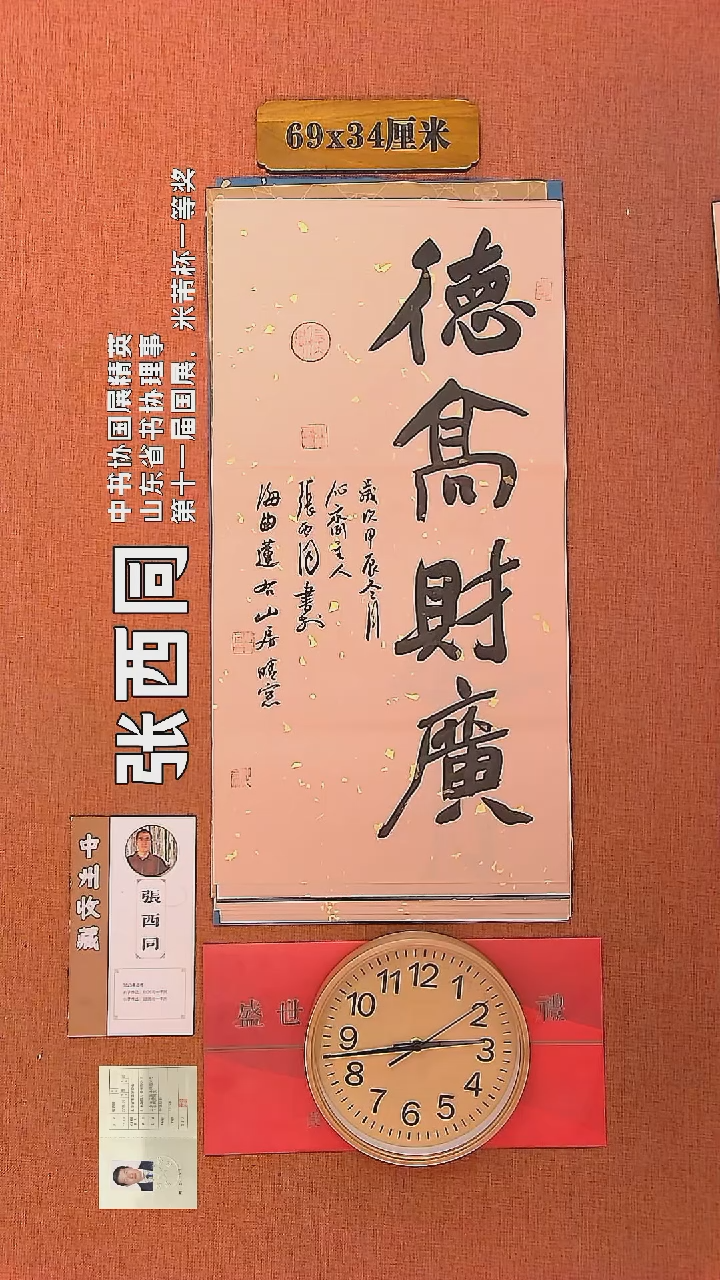 69x34厘米
德高財廣
歲次甲辰冬月
心齋主人
張西同書於
海曲蓮石山居晴窓
中书协国展精英
山东省书协理事
第十一届国展、米芾杯一等奖
张西同
張西同
盛世
禮
12
1
2
3
4
5
6
7
8
9
10
11